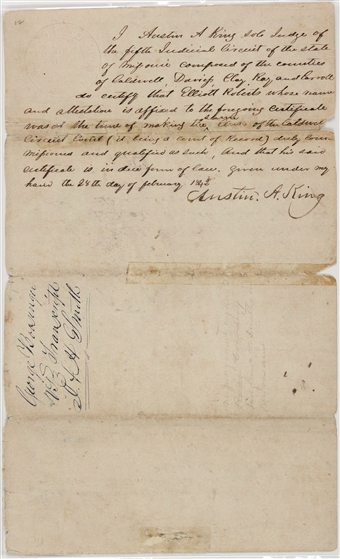 I Austin A King sole Judge of
the fifth Judicial Circuit of the state
of Missouri composed of the counties
of Caldwell Daviess Clay Ray and Carroll
do certify that Elliott Roberts whose name
and attestation is affixed to the foregoing certificate
was at the time of making the same Clerk of the Caldwell
Circuit Court (it being a court of Record) duly
and qualified as such, And that his said
certificate is in due form of law. Given under my
hand the 24th day of february 1842
Austin. A. King
George
Transcript
Smith